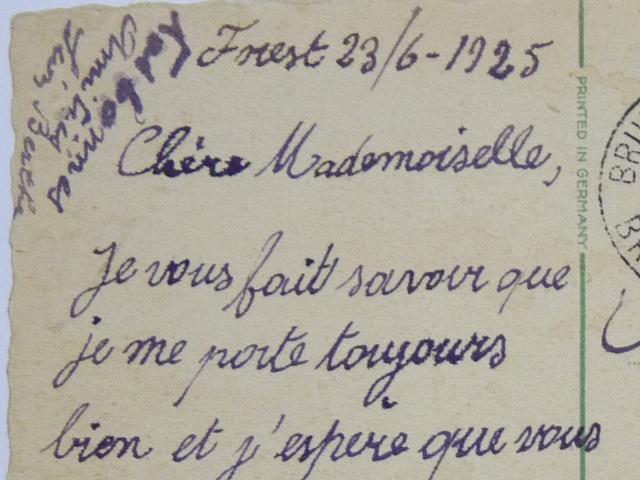 Forest 23/6-1925
Chère Mademoiselle,
Je vous fait savoir que
je me porte toujours
bien et j'espère que vous
bonnes
Amitiés
PRINTED IN GERMANY
BRU